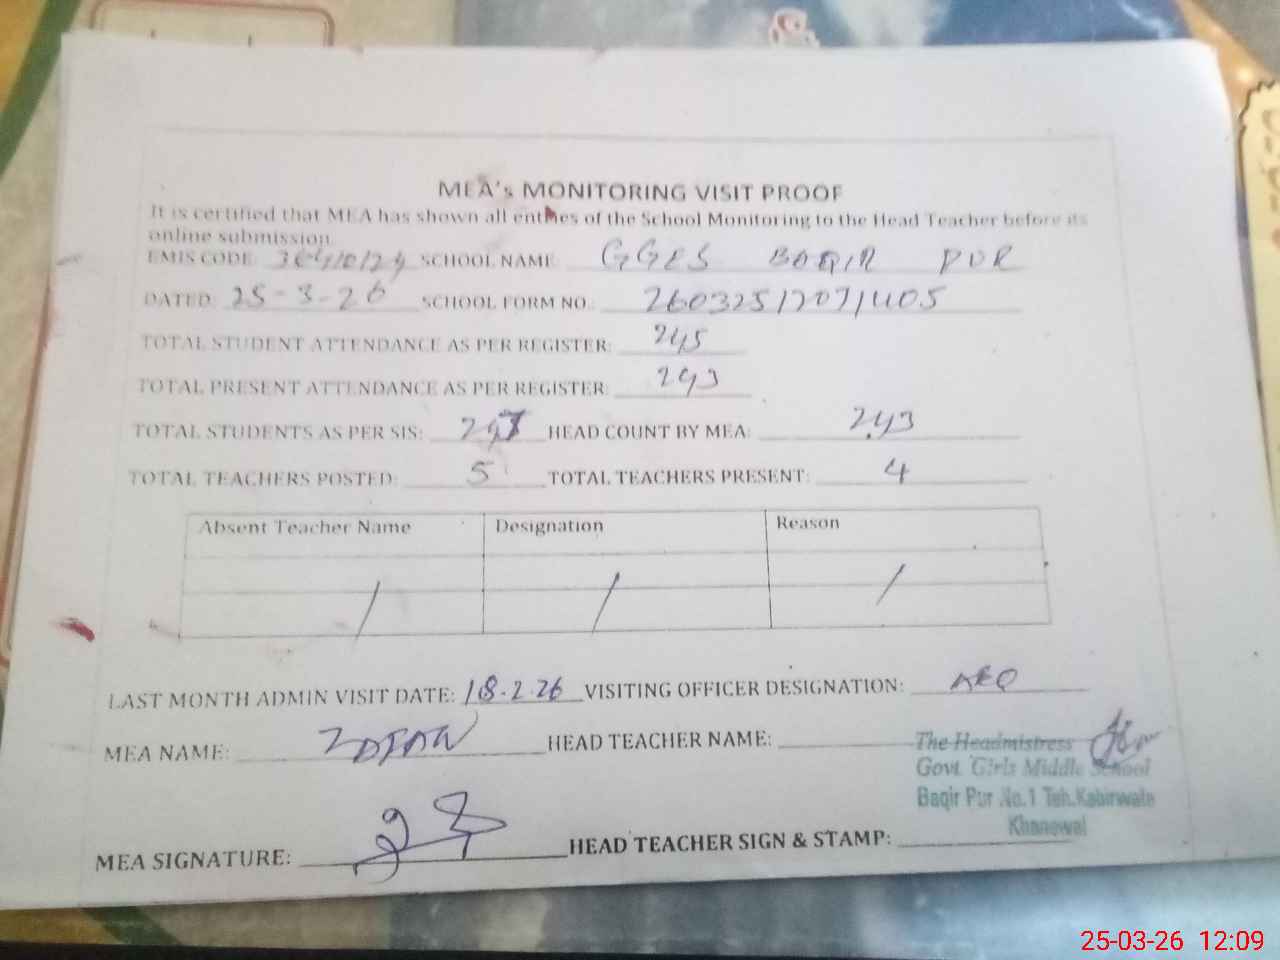 MEA's MONITORING VISIT PROOF
It is certified that MEA has shown all entries of the School Monitoring to the Head Teacher before its
online submission.
EMIS CODE: SCHOOL NAME: GGES BAQIR PUR
DATED: 25-3-26 SCHOOL FORM NO.:
TOTAL STUDENT ATTENDANCE AS PER REGISTER: 245
TOTAL PRESENT ATTENDANCE AS PER REGISTER: 243
TOTAL STUDENTS AS PER SIS: HEAD COUNT BY MEA: 243
TOTAL TEACHERS POSTED: 5 TOTAL TEACHERS PRESENT: 4
Absent Teacher Name Designation Reason
/ / /
LAST MONTH ADMIN VISIT DATE: 18-2-26 VISITING OFFICER DESIGNATION: AEO
MEA NAME: HEAD TEACHER NAME:
The Headmistress
Govt. Girls Middle School
Baqir Pur No.1 Teh.Kabirwala
Khanewal
MEA SIGNATURE: HEAD TEACHER SIGN & STAMP:
25-03-26 12:09